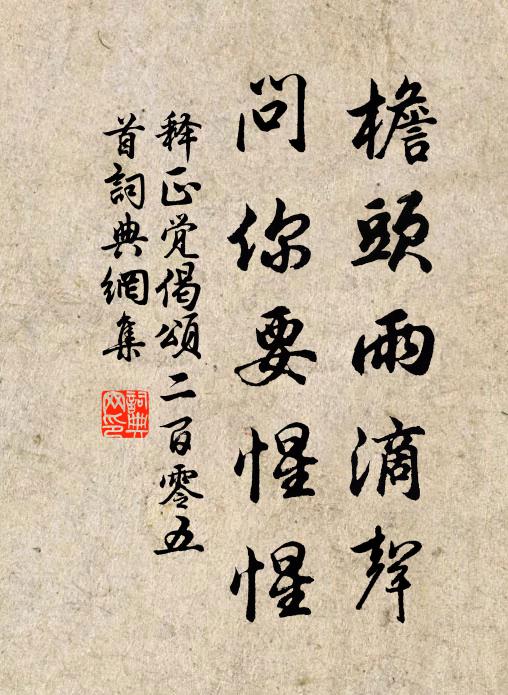 檐頭雨滴聲
問你要惺惺
释正覚偈頌二百零五
首詞典網集
詞典
网印